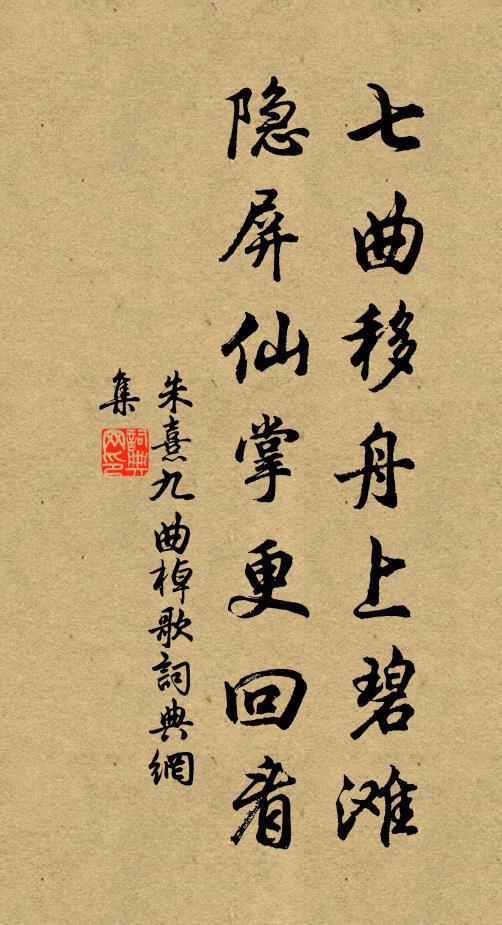 七曲移舟上碧滩
隐屏仙掌更回看
朱熹九曲棹歌詞典網
集
詞典網印